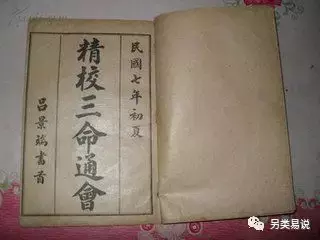 民國七年初夏
精校三命通會
呂景端書首
另类易说